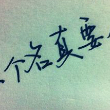 个名真要